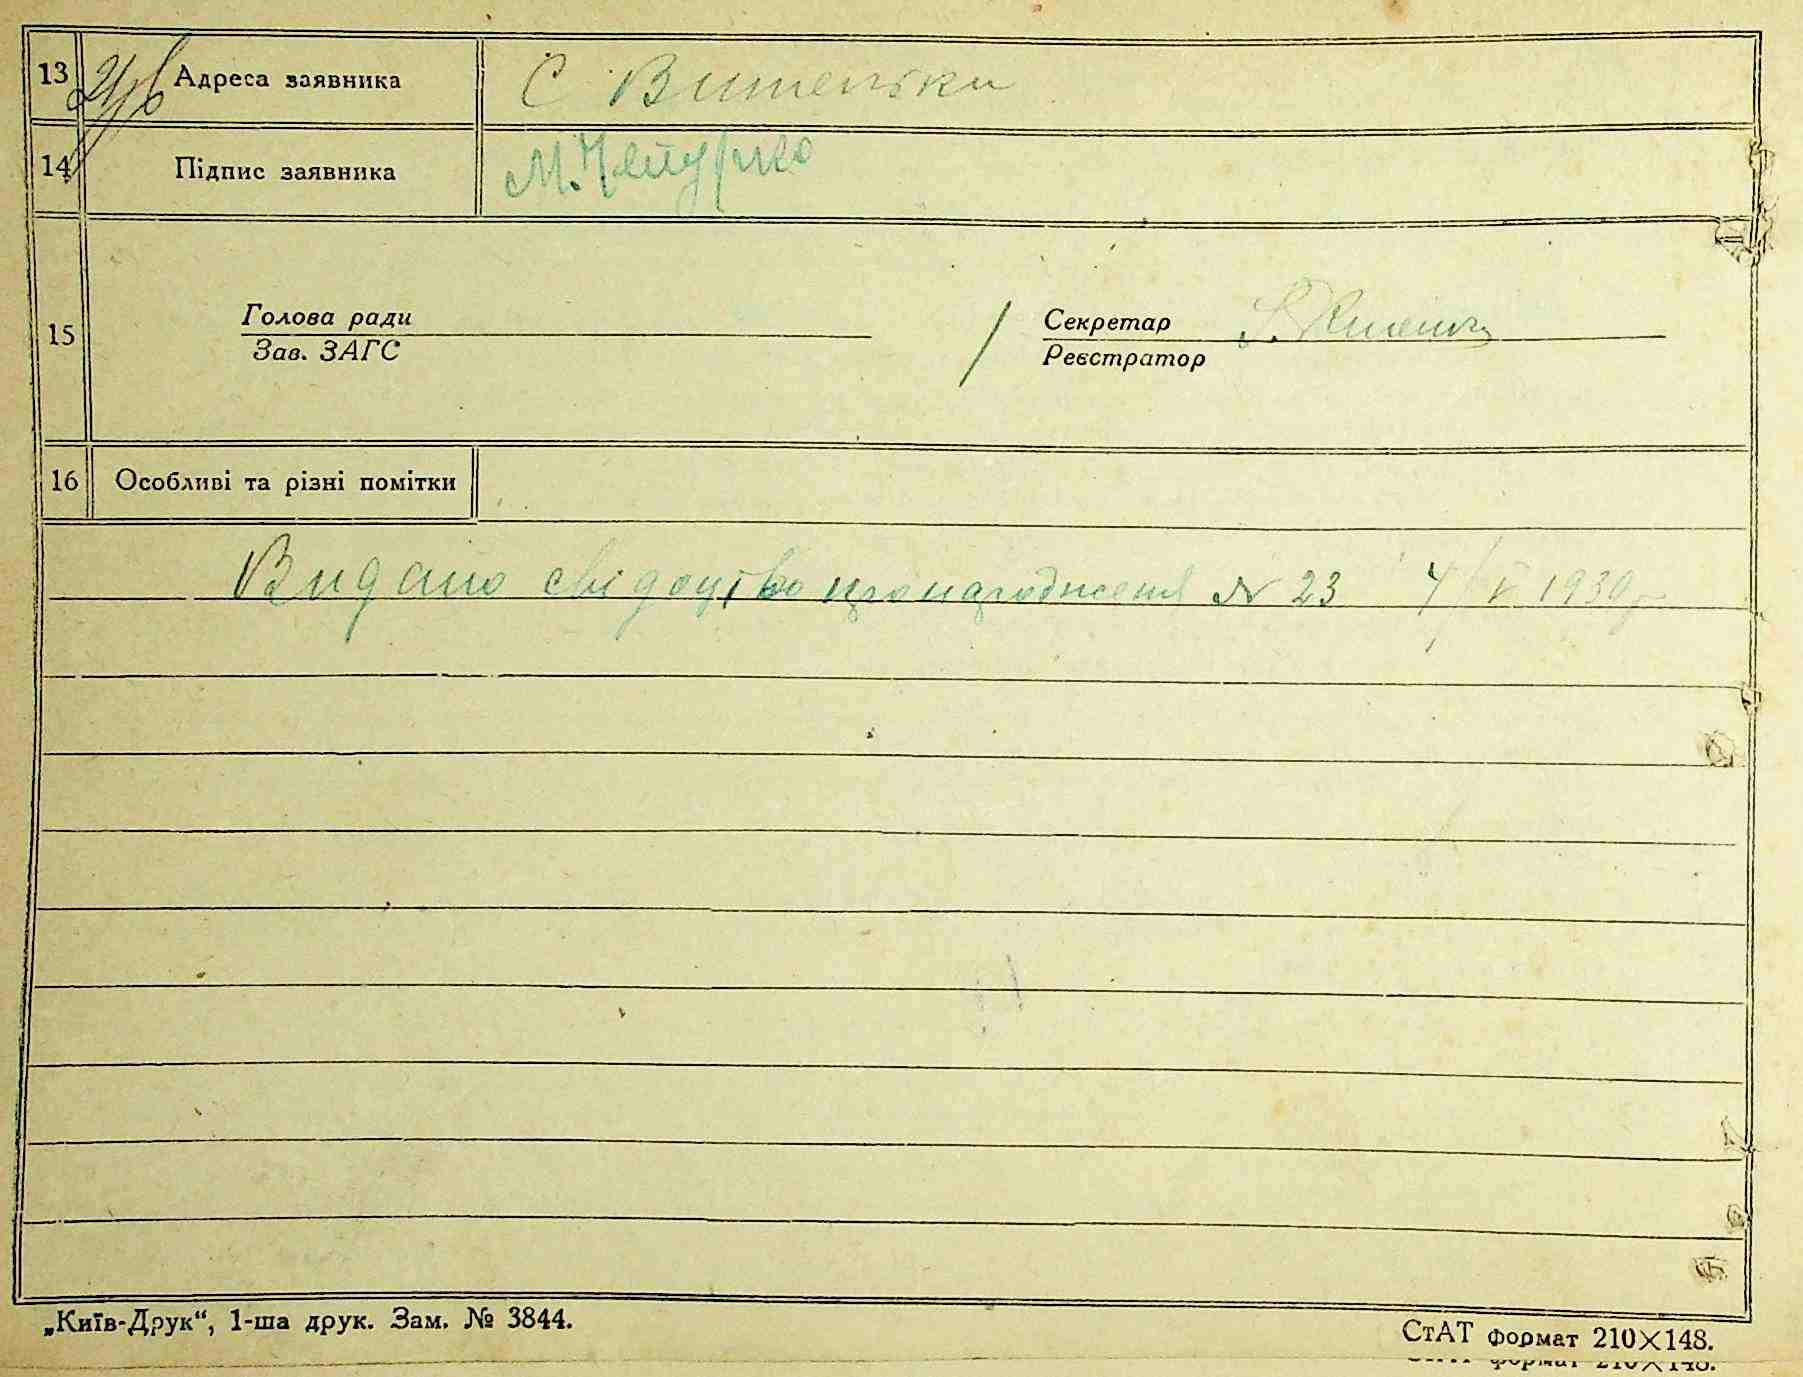 13 Адреса заявника С
14 Підпис заявника М. Чепурко
15 Голова ради
Зав. ЗАГС
Секретар
Реєстратор
16 Особливі та різні помітки
Видано свідоцтво про народження № 23 4/V 1930 р
„Київ-Друк“, 1-ша друк. Зам. № 3844.
СтАТ формат 210×148.